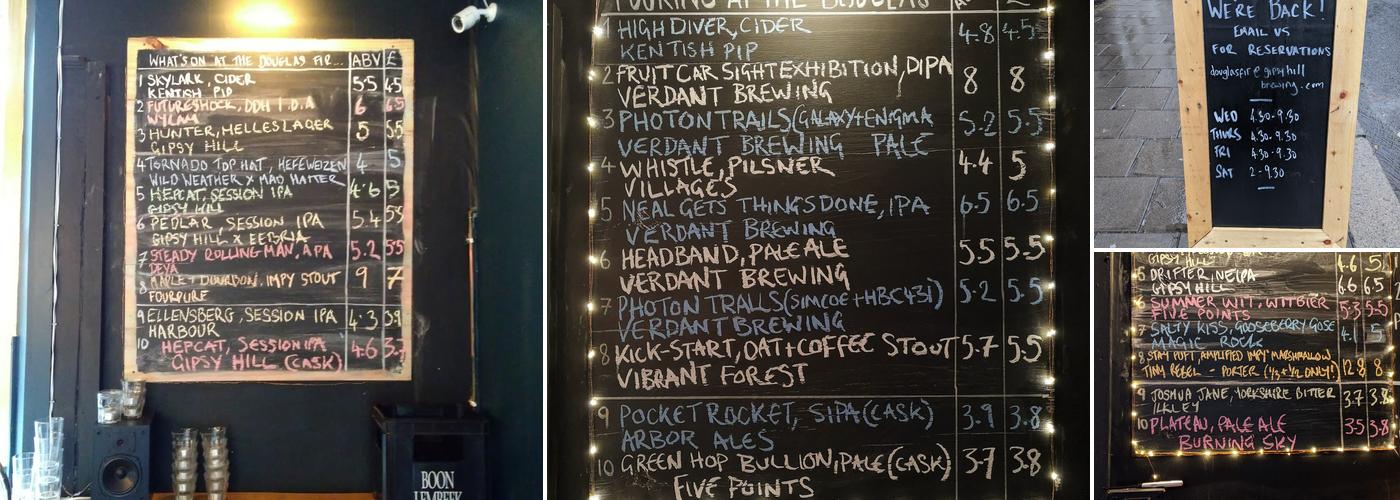 WHAT'S ON AT THE DOUGLAS FIR... ABV £
1 SKYLARK, CIDER 5.5 4.5
KENTISH PIP
2 FUTURESHOCK, DDH I.D.A 6 6.5
WYLAM
3 HUNTER, HELLES LAGER 5 5.5
GIPSY HILL
4 TORNADO TOP HAT, HEFEWEIZEN 4 5
WILD WEATHER X MAD HATTER
5 HEPCAT, SESSION IPA 4.6 5
GIPSY HILL
6 PEDLAR, SESSION IPA 5.4 5.5
GIPSY HILL X
7 STEADY ROLLING MAN, APA 5.2 5.5
DEYA
8 MAPLE + BOURBON, IMPY STOUT 9 7
FOURPURE
9 ELLENSBERG, SESSION IPA 4.3 3.9
HARBOUR
10 HEPCAT, SESSION IPA 4.6 3.7
GIPSY HILL (CASK)
BOON
LEMBEEK
POURING AT THE DOUGLAS
1 HIGH DIVER, CIDER 4.8 4.5
KENTISH PIP
2 FRUIT CAR SIGHT EXHIBITION, DIPA 8 8
VERDANT BREWING
3 PHOTON TRAILS (GALAXY + ENIGMA 5.2 5.5
VERDANT BREWING PALE
4 WHISTLE, PILSNER 4.4 5
VILLAGES
5 NEAL GETS THINGS DONE, IPA 6.5 6.5
VERDANT BREWING
6 HEADBAND, PALE ALE 5.5 5.5
VERDANT BREWING
7 PHOTON TRALLS (SIMCOE + HBC431) 5.2 5.5
VERDANT BREWING
8 KICK-START, OAT + COFFEE STOUT 5.7 5.5
VIBRANT FOREST
9 POCKET ROCKET, SIPA (CASK) 3.9 3.8
ARBOR ALES
10 GREEN HOP BULLION, PALE (CASK) 3.7 3.8
FIVE POINTS
WE'RE BACK!
EMAIL US
FOR RESERVATIONS
douglasfir@gipsyhill
brewing.com
WED 4.30-9.30
THURS 4.30-9.30
FRI 4.30-9.30
SAT 2-9.30
GIPSY HILL 4.6 5
5 DRIFTER, NEIPA 6.6 6.5
GIPSY HILL
6 SUMMER WIT, WITBIER 5.3 5.5
FIVE POINTS
7 SALTY KISS, GOOSEBERRY GOSE 4.1 5
MAGIC ROCK
8 STAY PUFT, AMPLIFIED IMPY MARSHMALLOW
TINY REBEL - PORTER (1/3 + 1/2 ONLY!) 12.8 8
9 JOSHUA JANE, YORKSHIRE BITTER 3.7 3.8
ILKLEY
10 PLATEAU, PALE ALE 3.5 3.8
BURNING SKY